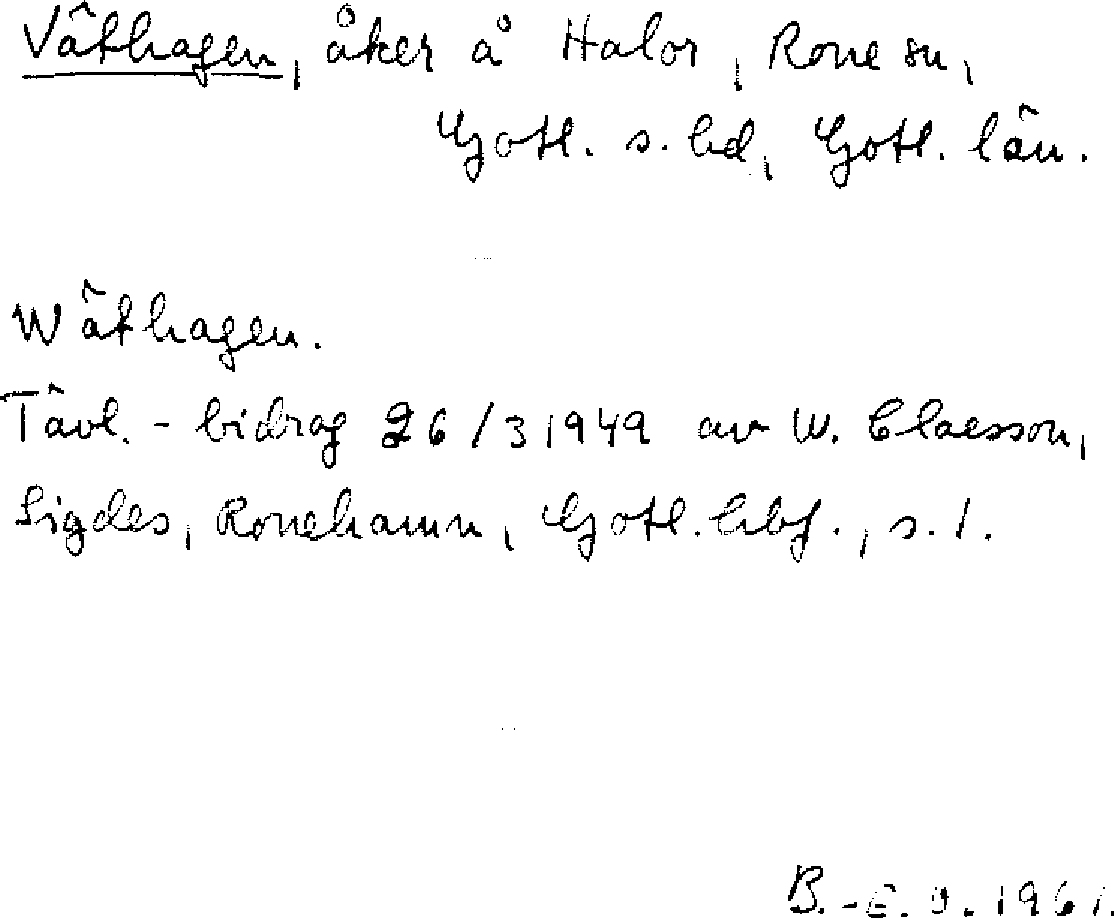 Väthagen, åker å Halor, Rone sn,
Gotl. s. hd, Gotl. län.
Wäthagen.
Tävl.-bidrag 26/3 1949 av W. Claesson,
Sigdes, Ronehamn, Gotl. hbf., s. 1.
B.-E. O. 1961.